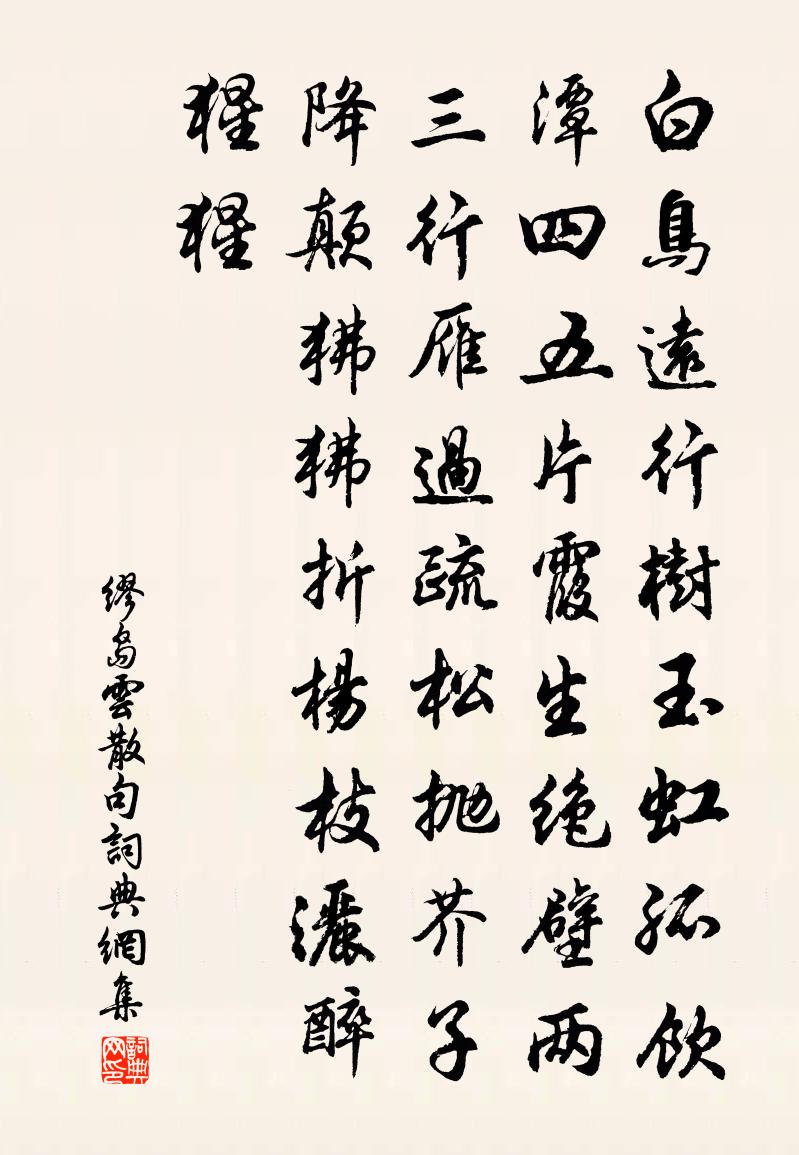 白鳥遠行樹玉虹孤飲
潭四五片霞生绝壁两
三行雁過疏松抛芥子
降颠狒狒折楊枝灑醉
猩猩
缪島雲散句詞典網集
詞典网印